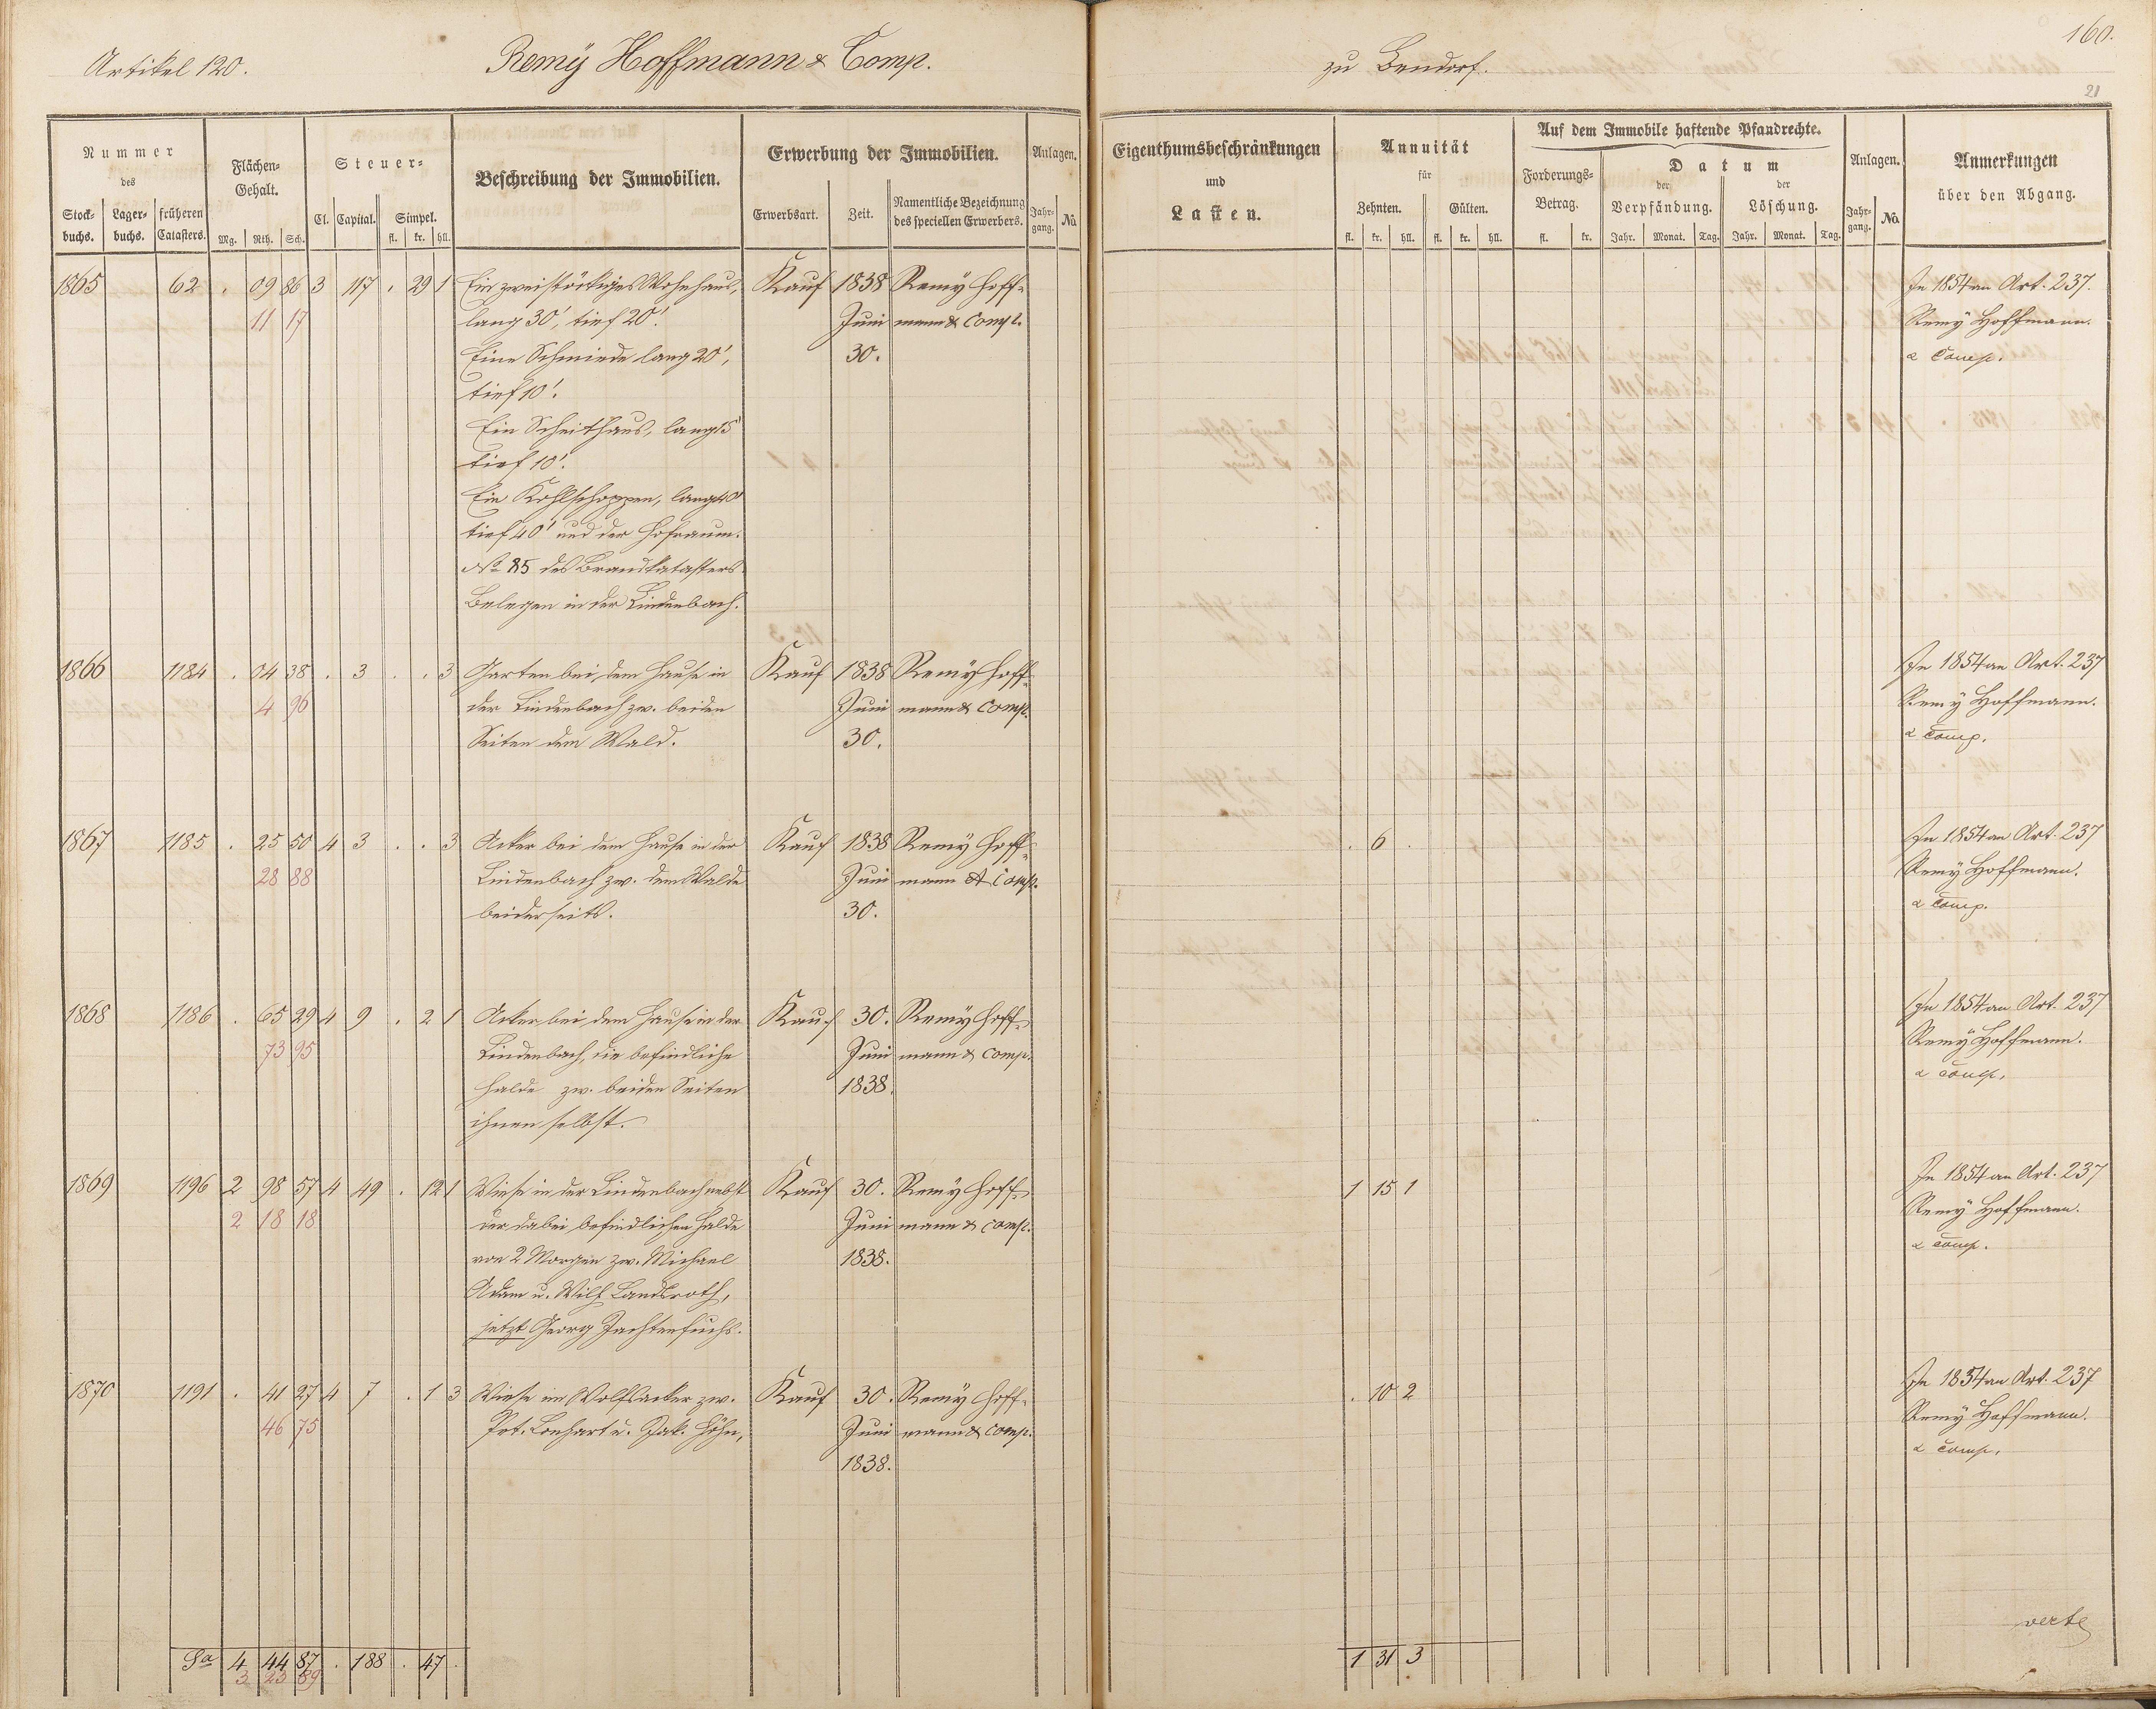 Artikel 120. Remÿ Hoffmann & Comp. zu Bendorf. 160.
21
Nummer
des
Stock-buchs. Lager-buchs. früheren Catasters.
Flächen-Gehalt.
Mg. Rth. Sch.
Steuer-
Cl. Capital. Simpel.
fl. kr. hll.
Beschreibung der Immobilien.
Erwerbung der Immobilien.
Erwerbsart. Zeit. Namentliche Bezeichnung des speciellen Erwerbers.
Anlagen.
Jahr-gang. No
Eigenthumsbeschränkungen
und
Lasten.
Annuität
für
Zehnten. Gülten.
fl. kr. hll. fl. kr. hll.
Auf dem Immobile haftende Pfandrechte.
Forderungs-Betrag.
fl. kr.
Datum
der Verpfändung. der Löschung.
Jahr. Monat. Tag. Jahr. Monat. Tag.
Anlagen.
Jahr-gang. No.
Anmerkungen
über den Abgang.
1865 62 . 09 86 3 117 . 29 1 Ein zweistöckiges Wohnhaus, Kauf 1838 Remÿ Hoff- In 1854 an Art. 237.
11 17 lang 30', tief 20'. Juni mann & Comp. Remÿ Hoffmann.
Eine Schmiede lang 20', 30. & Comp.
tief 10'.
Ein Scheithaus, lang 15'
tief 10'.
Ein Kohlschoppen, lang 40'
tief 40' und der Hofraum.
No 85 des Brandkatasters
Belegen in der Lindenbach.
1866 1184 . 04 38 . 3 . . 3 Garten bei dem Hause in Kauf 1838 Remÿ Hoff- In 1854 an Art. 237
4 96 der Lindenbach zw. beiden Juni mann & Comp. Remÿ Hoffmann.
Seiten dem Wald. 30. & Comp.
1867 1185 . 25 50 4 3 . . 3 Acker bei dem Hause in der Kauf 1838 Remÿ Hoff- . 6 . In 1854 an Art. 237
28 88 Lindenbach zw. dem Walde Juni mann & Comp. Remÿ Hoffmann.
beiderseits. 30. & Comp.
1868 1186 . 65 29 4 9 . 2 1 Acker bei dem Hause in der Kauf 30. Remÿ Hoff- In 1854 an Art. 237
73 95 Lindenbach, die befindliche Juni mann & Comp. Remÿ Hoffmann.
Halde zw. beiden Seiten 1838. & Comp.
ihnen selbst.
1869 1196 2 98 57 4 49 . 12 1 Wiese in der Lindenbach nebst Kauf 30. Remÿ Hoff- 1 15 1 In 1854 an Art. 237
2 18 18 der dabei befindlichen Halde Juni mann & Comp. Remÿ Hoffmann.
von 2 Morgen zw. Michael 1838. & Comp.
Adam u. Wilh. Landsroth,
jetzt Georg Jachtenfuchs.
1870 1191 . 41 27 4 7 . 1 3 Wiese im Wolfsacker zw. Kauf 30. Remÿ Hoff- . 10 2 In 1854 an Art. 237
46 75 Pet. Lenhart u. Jak. Höhn, Juni mann & Comp. Remÿ Hoffmann.
1838. & Comp.
verte
Sa 4 44 87 . 188 . 47 . 1 31 3
3 23 89